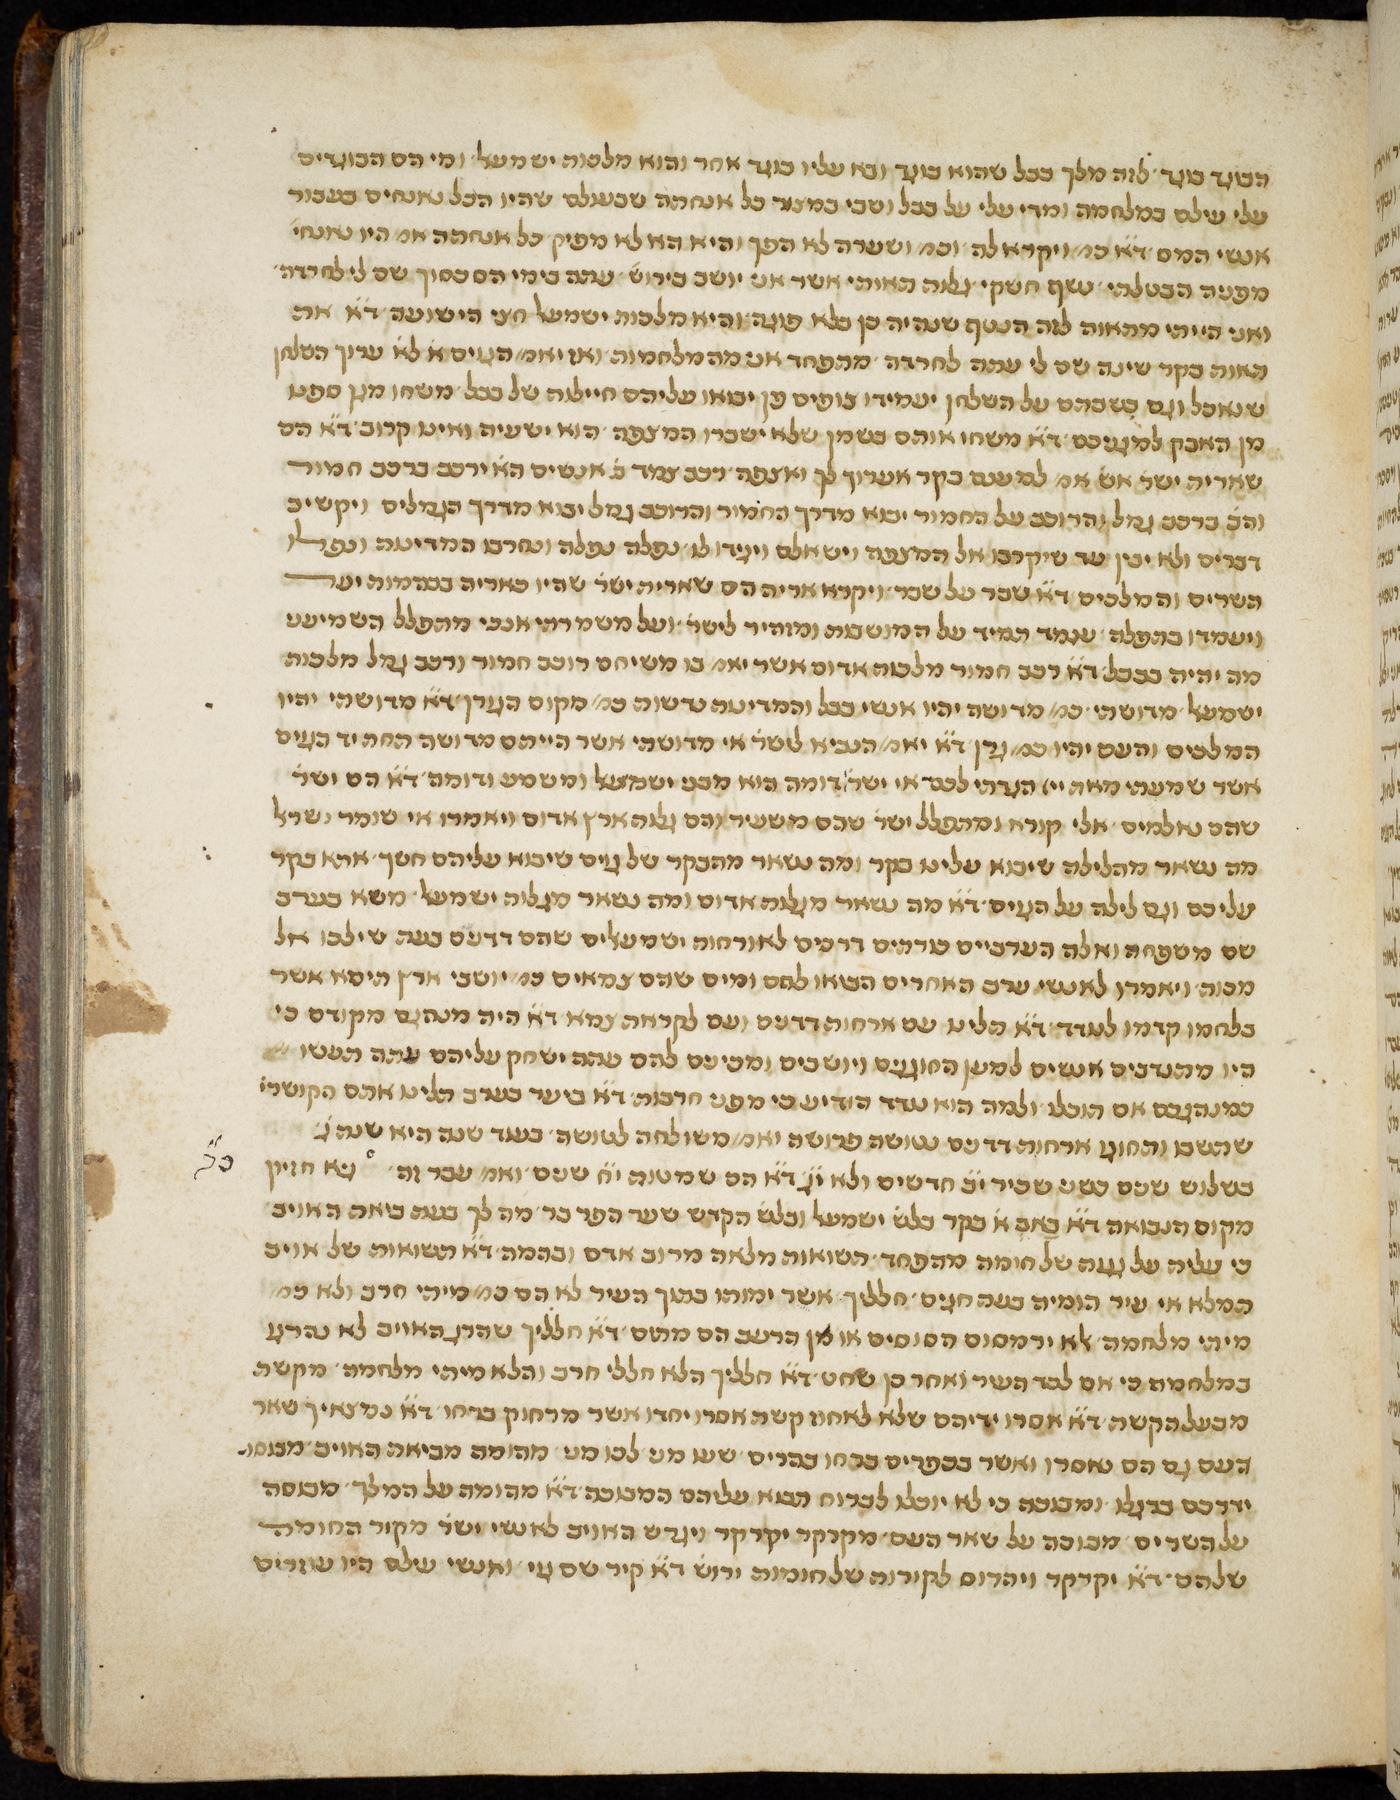 הבוגד בוגד לזה מלך בבל שהוא בוגד ובא עליו בוגד אחר והוא מלכות ישמעאל ומי הם הבוגדים
עלי עילם במלחמה ומדי עלי על בבל ושבי במצור כל אנחתה שבעולם שהיו הכל נאנחים בעבור
אנשי המס ד״א כמ׳ ויקרא לה וכמ׳ ושערה לא הפך והיא הא לא מפיק כל אנחתה אמ׳ היו נאנחי׳
מפניה הבטלתי נשף חשקי גלות האותי אשר אני יושב בירוש׳ עתה בימי הם כסוך שם לי לחרדה
ואני הייתי מתאוה לזה הנשף שנהיה בן בלא פונה והיא מלכות ישמעאל חצי הישועה ד״א את
האוה בקר שינה שם לי עתה לחרדה מהפחד אני מהמלחמות ואז יאמ׳ הגוים א׳ לא׳ ערוך השלחן
שנאכל וגם בשבתם על השלחן יעמידו צופים פן יבואו עליהם חיילות של בבל משחו מגן ספנו
מן האבק למגניכם ד״א משחו אותם בשמן שלא ישברו המצפה הוא ישעיה ואינו קרוב ד״א הם
שאריה ישר׳ אשו אמ׳ לפעמים בקר אערוך לך ואצפה רכב צמד ב׳ אנשים הא׳ ירכב ברכב חמור
והב׳ ברכב גמל והרוכב על החמור יבוא מדרך החמור והרוכב גמל יבוא מדרך הגמלים ויקשיב
דברים ולא יבין עד שיקרבו אל המצפה וישאלם ויגידו לו נפלה נפלה ונחרבו המדינות ונפלו
השרים והמלכים ד״א שבר על שבר ויקרא אריה הם שארית ישר׳ שהיו כאריה בבהמות יער
ויעמדו בתפלה עומד תמיד על המושבות ומזהיר לישר׳ ועל משמרתי אנכי מתפלל השמיעני
מה יהיה בבבל ד״א רכב חמור מלכות אדום אשר יאמ׳ בו משיחם רוכב חמור ורכב גמל מלכות
ישמעאל מדושתי כמ׳ מדושה יהיו אנשי בבל והמדינות נדשות כמ׳ מקום הגורן ד״א מדושתי יהיו
המלכים והעם יהיו כמ׳ גרן ד״א יאמ׳ הנביא לישר׳ אי מדושתי אשר הייתם מדושה תחת יד הגוים
אשר שמעתי מאת יי׳ הגדתי לכם אי ישר׳ דומה הוא מבני ישמעאל ומשמע ודומה ד״א הם ישר׳
שהם נאלמים אלי קורא ומתפלל ישר׳ שהם משעיר והם גלות ארץ אדום ויאמרו אי שומר ישראל
מה נשאר מהלילה שיבוא עלינו בקר ומה נשאר מהבקר של גוים שיבוא עליהם חשך אתא בקר
עליכם וגם לילה על הגוים ד״א מה נשאר מגלות אדום ומה נשאר מגלות ישמעאל משא בערב
שם משפחה ואלה הערביים טורחים דרכים לאורחות ישמעאלים שהם דדנים בעת שילכו אל
מכה ויאמרו לאנשי ערב האחרים הביאו לחם ומים שהם צמאים כמ׳ יושבי ארץ תימא אשר
בלחמו קדמו לנודד ד״א תלינו עם ארחות דדנים ועם לקראת צמא ד״א היה מנהגם מקודם כי
היו מתנדבים אנשים למען החוגגים ויושבים ומכינים להם עתה ישחק עליהם עתה תעשו
כמנהגכם אם תוכלו ולמה הוא נודד הודיע כי מפני חרבות ד״א ביער בערב תלינו אתם הקושרי׳
שתשבו והחוגו ארחות דדנים נטושה פרושה ואמ׳ משולחה לטושה בעוד שנה היא שנה ג׳
בשלוש שנים כשני שכיר י״ב חדשים ולא י״ג ד״א הם שמטות י״ח שנים ואמ׳ עבר זה גיא חזיון
מקום הנבואה ד״א באב א׳ בקר בלש׳ ישמעאל ובלש׳ הקדש שער הפר בר מה לך בעת ביאת האויב
כי עלית על גגות של חומה מהפחד תשואות מלאה מרוב אדם ובהמה ד״א תשואות של אויב
המלא אי עיר הומיה בעת חגים חלליך אשר ימותו בתוך העיר לא הם כמ׳ מיתי חרב ולא כמ׳
מיתי מלחמה לא ירמסום הסוסים או מן הרעב הם מתים ד״א חלליך שהרג האויב לא נהרגו
במלחמה כי אם לכד העיר ואחר כן שחט ד״א חלליך הלא חללי חרב והלא מיתי מלחמה מקשת
מבעל הקשת ד״א אסרו ידיהם שלא לאחוז קשת אסרו יחדו אשר מרחוק ברחו ד״א נמצאיך שאר
העם גם הם נאסרו ואשר בכפרים ברחו בהרים שעו מני לכו מני מהומה מביאת האויב מבוסה
ידרכם ברגלו ומבוכה כי לא יוכלו לברוח תבוא עליהם המבוכה ד״א מהומה על המלך מבוסה
על השרים מבוכה על שאר העם מקרקר יקרקר ויגרש האויב לאנשי ישר׳ מקיר החומה
שלהם ד״א יקרקר ויהרוס לקירות של חומות ירוש׳ ד״א קיר שם גוי ואנשי עולם היו עוזרים